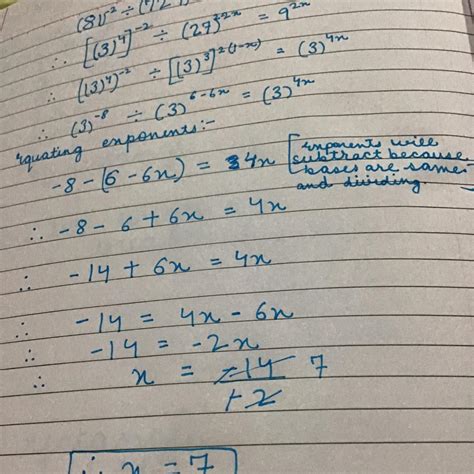 (81)⁻² ÷ (729)
∴ [(3)⁴]⁻² ÷ (27)²⁻²ˣ = 9²ˣ
∴ ((3)⁴)⁻² ÷ [(3)³]²⁽¹⁻ˣ⁾ = (3)⁴ˣ
∴ (3)⁻⁸ ÷ (3)⁶⁻⁶ˣ = (3)⁴ˣ
equating exponents:-
-8 - (6 - 6x) = 4x [exponents will
subtract because
bases are same
and dividing.
∴ -8 - 6 + 6x = 4x
∴ -14 + 6x = 4x
∴ -14 = 4x - 6x
∴ -14 = -2x
∴ x = -14 7
+2
∴ x = 7